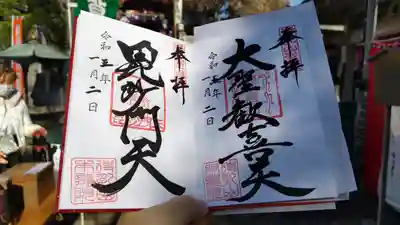 奉拝
大聖歓喜天
令和五年一月二日
奉拝
毘沙門天
令和五年
一月二日